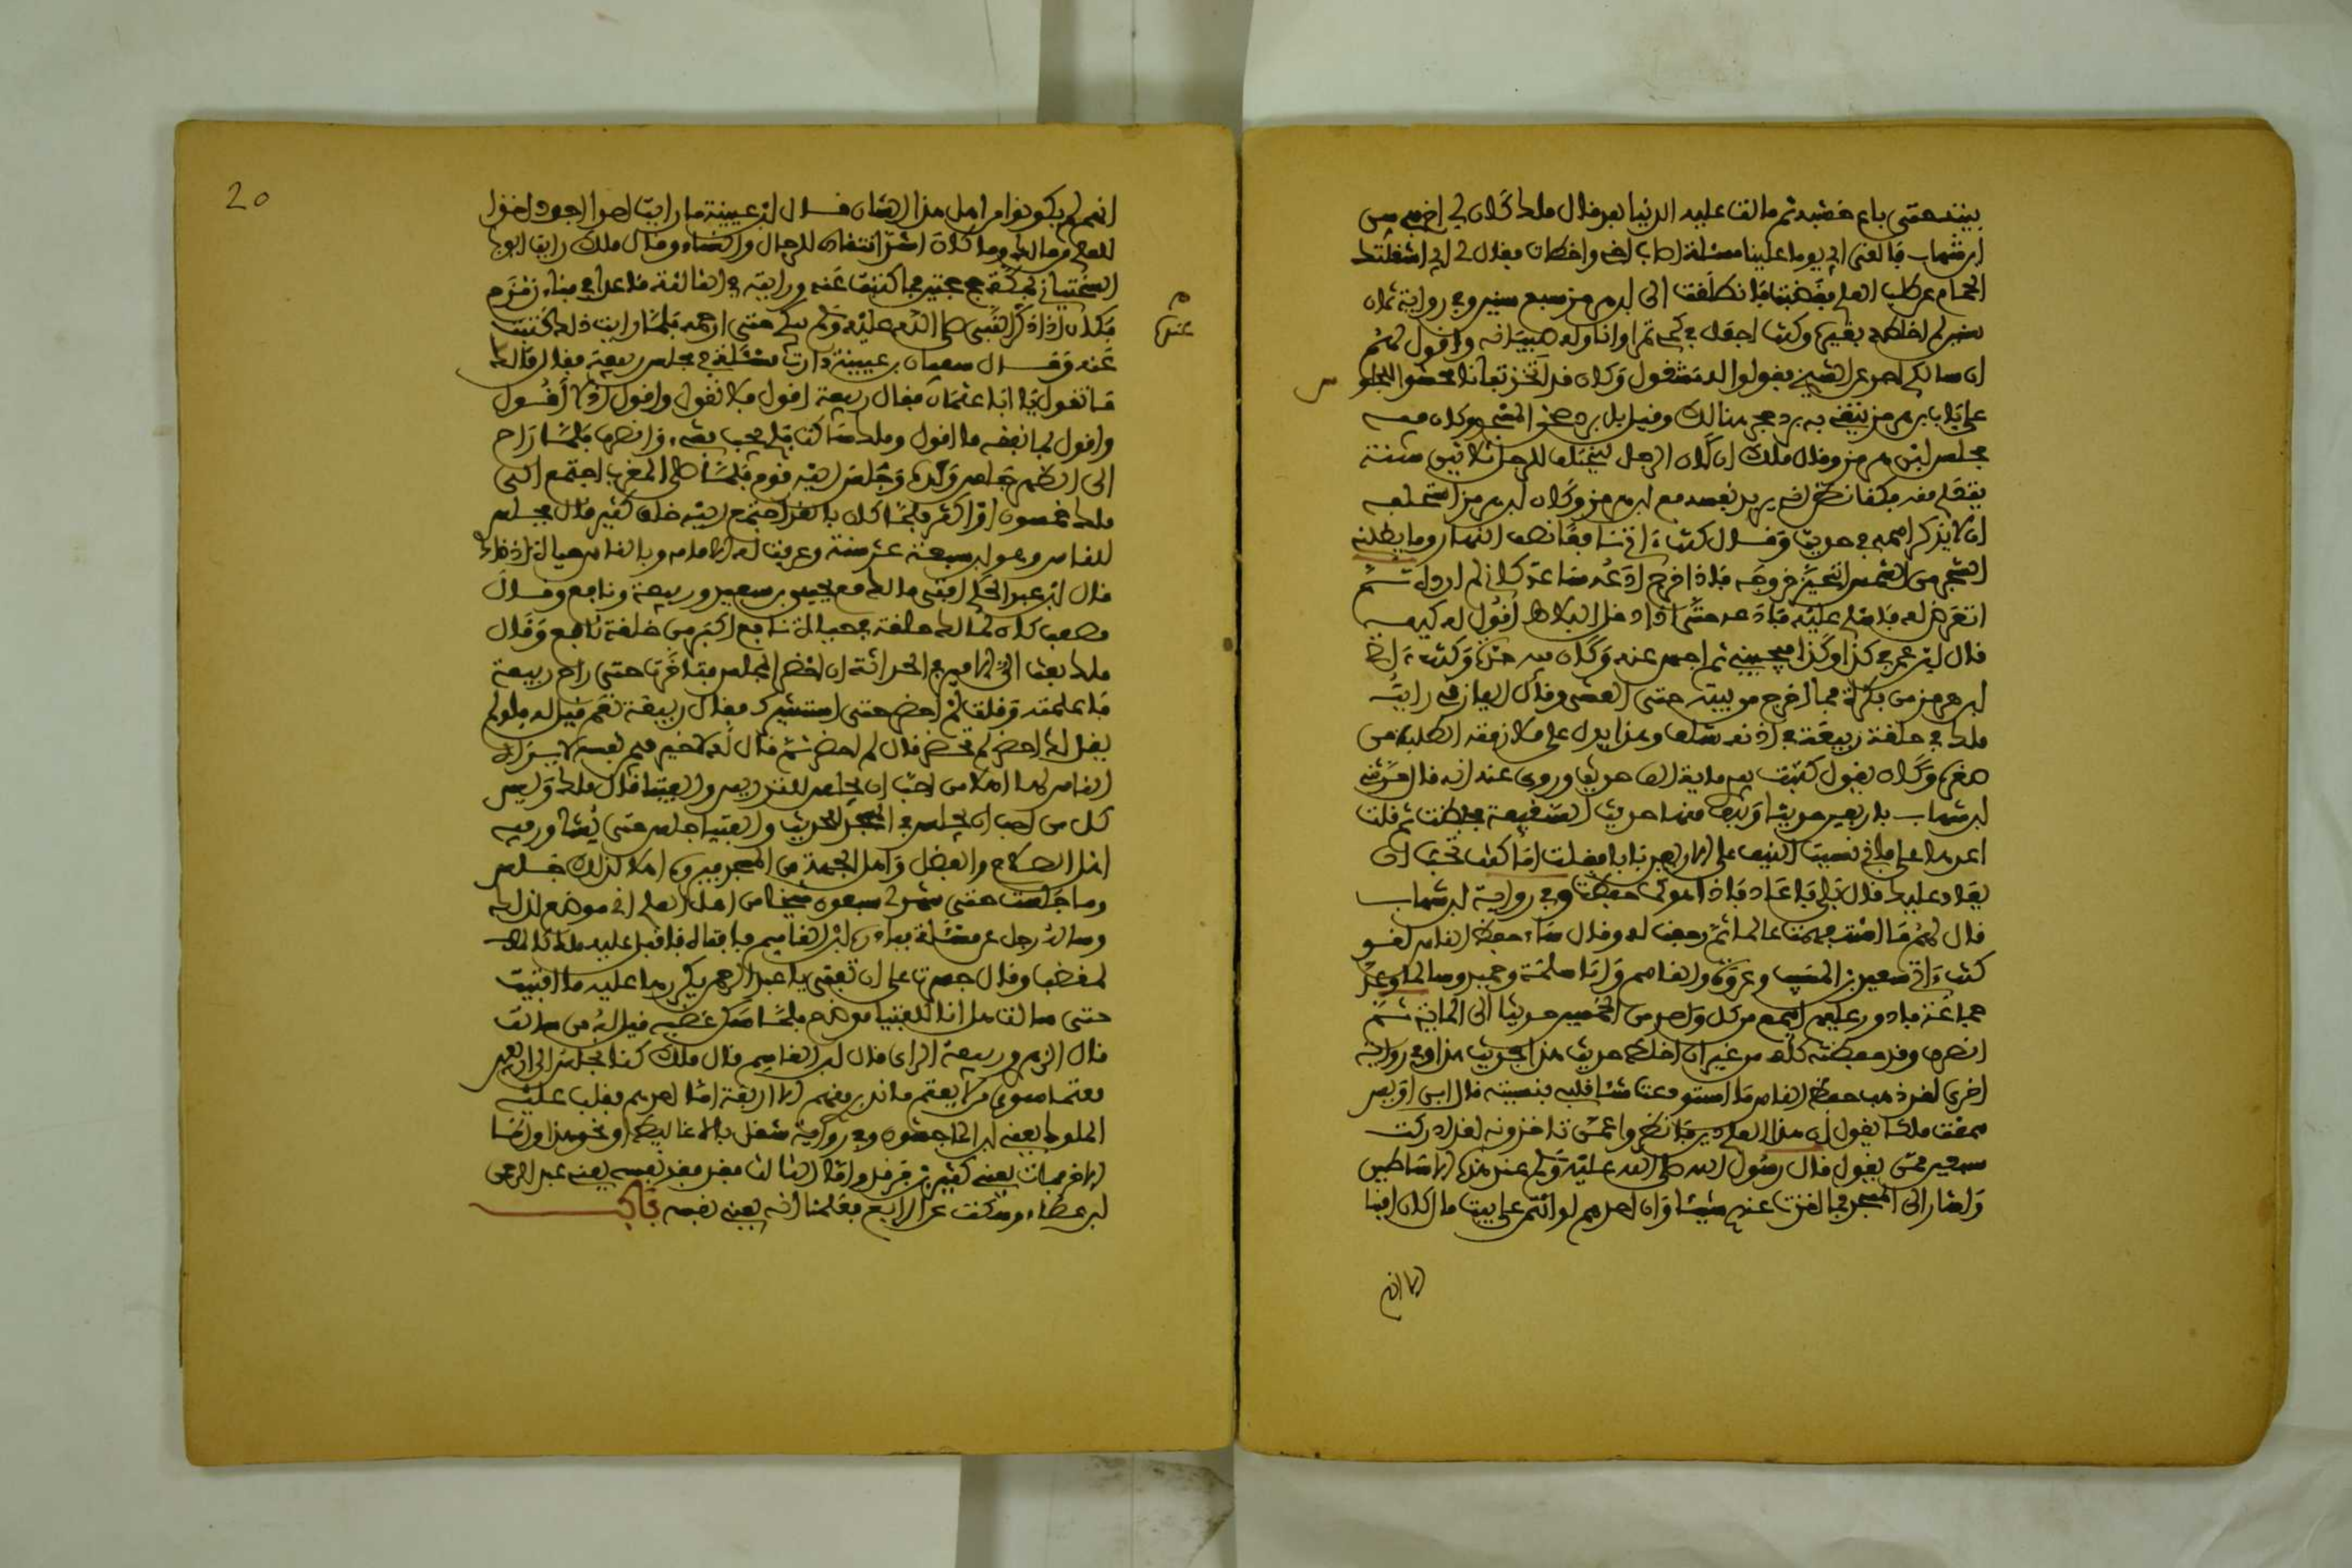 بيته حتى باع خشبه ثم مالت عليه الدنيا بعد قال ملك كان لي اخ في سن
ابن شهاب فالقى ابي يوما علينا مسئلة اصاب اخي واخطات فقال لي ابي اشغلتك
الحمام عن طلب العلم فغضبت فانطلقت الى ابن هرمز سبع سنين وفي رواية ثمان
سنين لم اخلطه بغيره وكنت اجعل في كمي تمرا واناوله صبيانه واقول لهم
ان سالكم احد عن الشيخ فقولوا له مشغول وكان قد اتخذ تبانا محشوا للجلوس
على باب ابن هرمز يتقي به برد حجر هنالك وقيل بل برد صحن المسجد وكان فيه
مجلس ابن هرمز وقال ملك ان كان الرجل ليختلف للرجل ثلاثين سنة
يتعلم منه فكنا نظن انه يريد نفسه مع ابن هرمز وكان ابن هرمز استحلفه
ان لا يذكر اسمه في حديث وقال كنت ءاتي نافعا نصف النهار وما يظلني
الشجر من الشمس اتحين خروجه فاذا خرج ادعه ساعة كاني لم ارده ثم
اتعرض له فاسلم عليه فادعه حتى اذا دخل البلاط اقول له كيف
قال ابن عمر في كذا وكذا فيجيبني ثم احبس عنه وكان فيه حدة وكنت ءاتي
ابن هرمز من بكرة فما اخرج من بيته حتى العشي وقال العازفي رايت
ملكا في حلقة ربيعة في اذنه شنف وهذا يدل على ملازمته الطلب من
صغره وكان يقول كتبت بيدي ماية الف حديث وروي عنه انه قال حدثني
ابن شهاب باربعين حديثا ونيف منها حديث السقيفة فحفظت ثم قلت
اعدها علي فاني نسيت النيف على الاربعين فابا فقلت اما كنت تحب ان
يعاد عليك قال بلى فاعاد فاذا هو كما حفظت وفي رواية ابن شهاب
قال له ما استفهمت عالما ثم رجعت له وقال ساء حفظ الناس لقد
كنت ءاتي سعيد بن المسيب وعروة والقاسم وابا سلمة وحميد وسالما وعد
جماعة فادور عليهم اسمع من كل واحد من الخمسين حديثا الى الماية ثم
انصرف وقد حفظته كله من غير ان اخلط حديث هذا بحديث هذا وفي رواية
اخرى لقد ذهب حفظ الناس ما استودعت شئا قلبي فنسيته قال ابن ابي اويس
سمعت ملكا يقول ان هذا العلم دين فانظروا عمن تاخذونه لقد ادركت
سبعين ممن يقول قال رسول الله صلى الله عليه وسلم عند هذه الاساطين
واشار الى المسجد فما اخذت عنهم شيئا وان احدهم لو ائتمن على بيت مال لكان امينا
الا ان
20
انهم لم يكونوا من اهل هذا الشان قال ابن عيينة ما رايت احدا اجود اخذا
للعلم من مالك وما كان اشد انتقاده للرجال والعلماء وقال ملك رايت ايوب
السختياني بمكة حج حجتين فما كتبت عنه ورايته في الثالثة قاعدا في فناء زمزم
فكان اذا ذكر النبي صلى الله عليه وسلم بكى حتى ارحمه فلما رايت ذلك كتبت
عنه وقال سفيان بن عيينة دارت مسئلة في مجلس ربيعة فقال ملك
ما تقول يا ابا عثمان فقال ربيعة اقول فلا تقول واقول اذ لا اقول
واقول فما تفقه ما اقول وملك ساكت فلم يجب بشيء وانصرف فلما راح
الى الظهر جلس وحده وجلس اليه قوم فلما صلى المغرب اجتمع الى
ملك خمسون او اكثر فلما كان بالغد اجتمع اليه خلق كثير قال فجلس
للناس وهو ابن سبعة عشر سنة وعرفت له الامامة وبالناس حياة اذ ذاك
قال ابن عبد الحكم افتى مالك مع يحيى بن سعيد وربيعة ونافع وقال
مصعب كان لمالك حلقة في حياة نافع اكبر من حلقة نافع وقال
ملك بعث الي الامير في الحداثة ان احضر المجلس فتاخرت حتى راح ربيعة
فاعلمته وقلت لم احضر حتى استشيرك فقال ربيعة نعم قيل له فلو لم
يقل لك احضر لم تحضر قال لم احضر ثم قال لا خير فيمن نفسه لا يراه
الناس لها اهلا من احب ان يجلس للتدريس والفتيا قال ملك وليس
كل من احب ان يجلس في المسجد للحديث والفتيا جلس حتى يشاور فيه
اهل الصلاح والفضل واهل الجهة من المسجد فان راوه اهلا لذلك جلس
وما جلست حتى شهد لي سبعون شيخا من اهل العلم اني موضع لذلك
وساله رجل عن مسئلة فبادره ابن القاسم فافتاه فاقبل عليه ملك كالمـ
لمغضب وقال جسرت على ان تفتي يا عبد الرحمن يكررها عليه ما افتيت
حتى سالت هل انا للفتيا موضع فلما سكن غضبه قيل له من سالت
قال الزهري وربيعة الراي قال ابن القاسم قال ملك كنا نجلس الى ربيعة
معتما سوى من لا يعتم ما ندبر منهم الا اربعة اما احدهم فغلب عليه
الملوك يعني ابن الماجشون وفي رواية شغل بالاغاليط او نحو هذا واما
الاخر فمات يعني كثير بن فرقد واما الثالث فغرب نفسه يعني عبد الرحمن
ابن عطاء وسكت عن الرابع فعلمنا انه يعني نفسه فاكـ